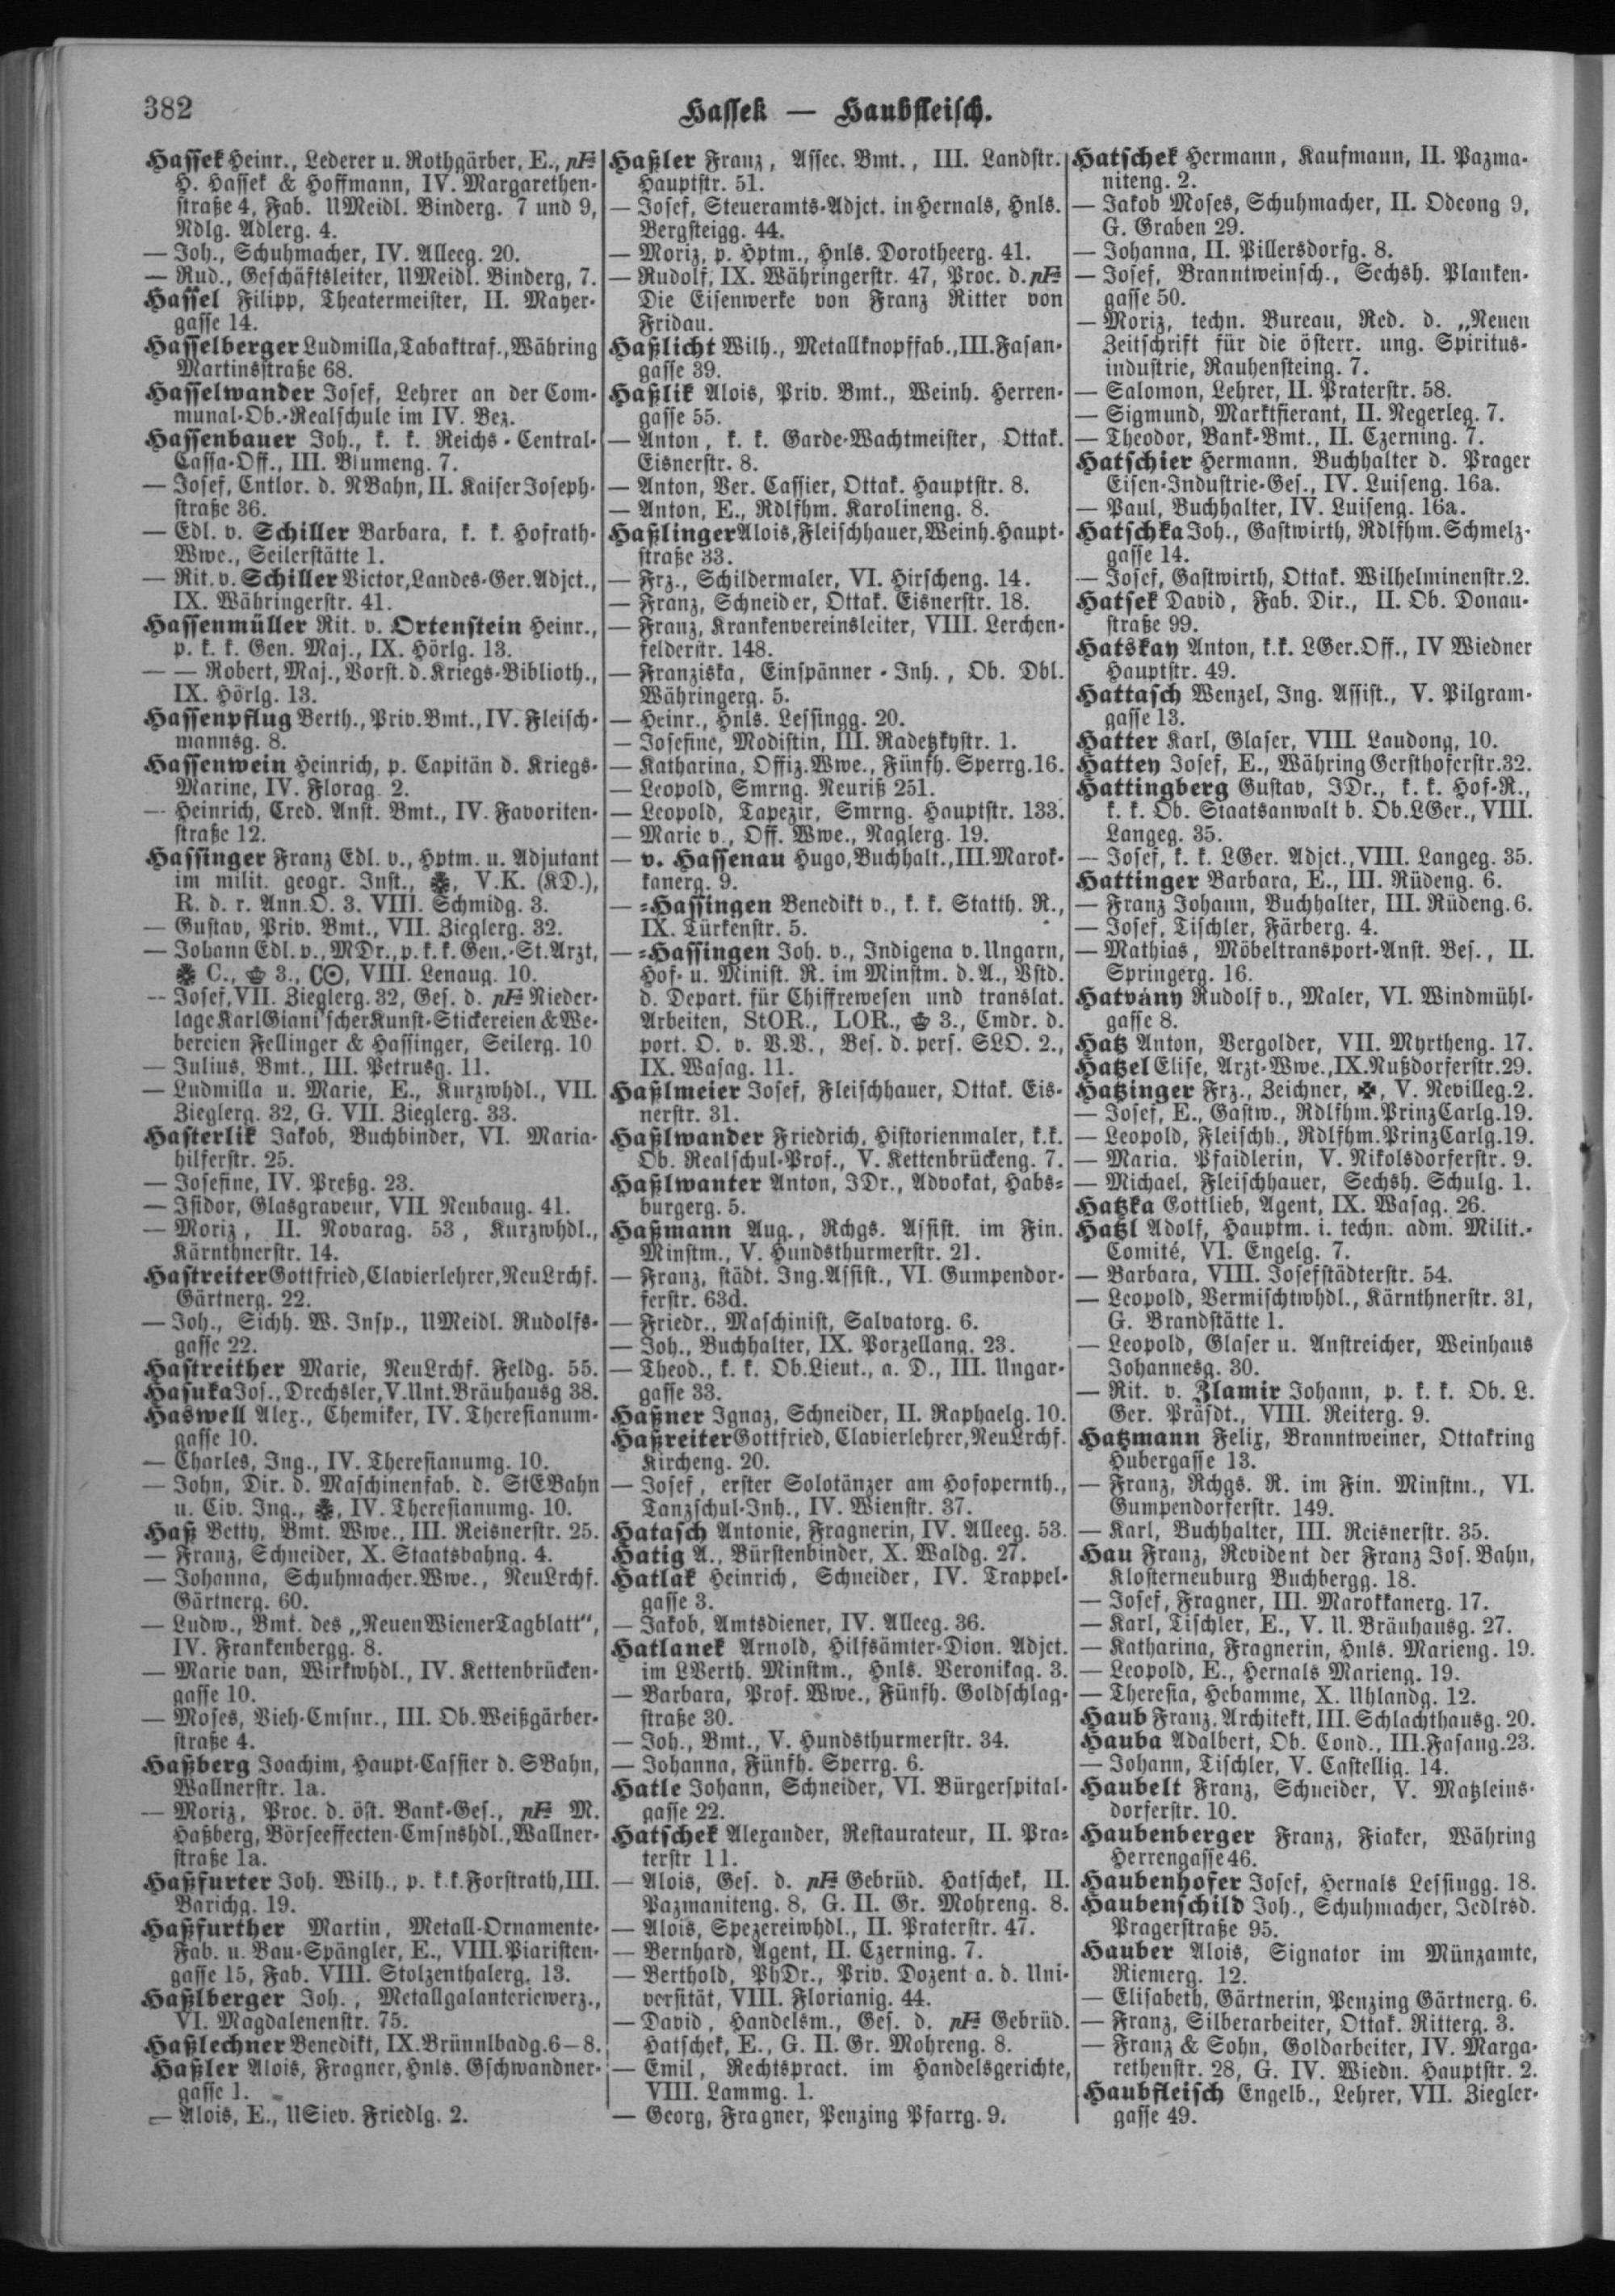 382
Hassek — Haubfleisch.
Hassek Heinr., Lederer u. Rothgärber, E., pF.
H. Hassek & Hoffmann, IV. Margarethen-
straße 4, Fab. UMeidl. Binderg. 7 und 9,
Ndlg. Adlerg. 4.
— Joh., Schuhmacher, IV. Alleeg. 20.
— Rud., Geschäftsleiter, UMeidl. Binderg, 7.
Hassel Filipp, Theatermeister, II. Mayer-
gasse 14.
Hasselberger Ludmilla, Tabaktraf., Währing
Martinsstraße 68.
Hasselwander Josef, Lehrer an der Com-
munal-Ob.-Realschule im IV. Bez.
Hassenbauer Joh., k. k. Reichs-Central-
Cassa-Off., III. Blumeng. 7.
— Josef, Cntlor. d. NBahn, II. Kaiser Joseph-
straße 36.
— Edl. v. Schiller Barbara, k. k. Hofrath-
Wwe., Seilerstätte 1.
— Rit. v. Schiller Victor, Landes-Ger. Adjct.,
IX. Währingerstr. 41.
Hassenmüller Rit. v. Ortenstein Heinr.,
p. k. k. Gen. Maj., IX. Hörlg. 13.
— — Robert, Maj., Vorst. d. Kriegs-Biblioth.,
IX. Hörlg. 13.
Hassenpflug Berth., Priv. Bmt., IV. Fleisch-
mannsg. 8.
Hassenwein Heinrich, p. Capitän d. Kriegs-
Marine, IV. Florag. 2.
— Heinrich, Cred. Anst. Bmt., IV. Favoriten-
straße 12.
Hassinger Franz Edl. v., Hptm. u. Adjutant
im milit. geogr. Inst., V.K. (KD.),
R. d. r. Ann.O. 3. VIII. Schmidg. 3.
— Gustav, Priv. Bmt., VII. Zieglerg. 32.
— Johann Edl. v., MDr., p. k. k. Gen.-St. Arzt,
C., 3., VIII. Lenaug. 10.
— Josef, VII. Zieglerg. 32, Ges. d. pF. Nieder-
lage Karl Giani'scher Kunst-Stickereien & We-
bereien Fellinger & Hassinger, Seilerg. 10
— Julius, Bmt., III. Petrusg. 11.
— Ludmilla u. Marie, E., Kurzwhdl., VII.
Zieglerg. 32, G. VII. Zieglerg. 33.
Hasterlik Jakob, Buchbinder, VI. Maria-
hilferstr. 25.
— Josefine, IV. Preßg. 23.
— Isidor, Glasgraveur, VII. Neubaug. 41.
— Moriz, II. Novarag. 53, Kurzwhdl.,
Kärnthnerstr. 14.
Hastreiter Gottfried, Clavierlehrer, NeuLrchf.
Gärtnerg. 22.
— Joh., Sichh. W. Insp., UMeidl. Rudolfs-
gasse 22.
Hastreither Marie, NeuLrchf. Feldg. 55.
Hasuka Jos., Drechsler, V. Unt. Bräuhausg 38.
Haswell Alex., Chemiker, IV. Theresianum-
gasse 10.
— Charles, Ing., IV. Theresianumg. 10.
— John, Dir. d. Maschinenfab. d. StEBahn
u. Civ. Ing., IV. Theresianumg. 10.
Haß Betty, Bmt. Wwe., III. Reisnerstr. 25.
— Franz, Schneider, X. Staatsbahng. 4.
— Johanna, Schuhmacher. Wwe., NeuLrchf.
Gärtnerg. 60.
— Ludw., Bmt. des „Neuen Wiener Tagblatt“,
IV. Frankenbergg. 8.
— Marie van, Wirkwhdl., IV. Kettenbrücken-
gasse 10.
— Moses, Vieh-Cmsnr., III. Ob. Weißgärber-
straße 4.
Haßberg Joachim, Haupt-Cassier d. SBahn,
Wallnerstr. 1a.
— Moriz, Proc. d. öst. Bank-Ges., pF. M.
Haßberg, Börseeffecten-Cmsnshdl., Wallner-
straße 1a.
Haßfurter Joh. Wilh., p. k. k. Forstrath, III.
Barichg. 19.
Haßfurther Martin, Metall-Ornamente-
Fab. u. Bau-Spängler, E., VIII. Piaristen-
gasse 15, Fab. VIII. Stolzenthalerg. 13.
Haßlberger Joh., Metallgalanteriewerz.,
VI. Magdalenenstr. 75.
Haßlechner Benedikt, IX. Brünnlbadg. 6—8.
Haßler Alois, Fragner, Hnls. Gschwandner-
gasse 1.
— Alois, E., USiev. Friedlg. 2.
Haßler Franz, Assec. Bmt., III. Landstr.
Hauptstr. 51.
— Josef, Steueramts-Adjct. in Hernals, Hnls.
Bergsteigg. 44.
— Moriz, p. Hptm., Hnls. Dorotheerg. 41.
— Rudolf, IX. Währingerstr. 47, Proc. d. pF.
Die Eisenwerke von Franz Ritter von
Fridau.
Haßlicht Wilh., Metallknopffab., III. Fasan-
gasse 39.
Haßlik Alois, Priv. Bmt., Weinh. Herren-
gasse 55.
— Anton, k. k. Garde-Wachtmeister, Ottak.
Eisnerstr. 8.
— Anton, Ver. Cassier, Ottak. Hauptstr. 8.
— Anton, E., Rdlfhm. Karolineng. 8.
Haßlinger Alois, Fleischhauer, Weinh. Haupt-
straße 33.
— Frz., Schildermaler, VI. Hirscheng. 14.
— Franz, Schneider, Ottak. Eisnerstr. 18.
— Franz, Krankenvereinsleiter, VIII. Lerchen-
felderstr. 148.
— Franziska, Einspänner-Inh., Ob. Dbl.
Währingerg. 5.
— Heinr., Hnls. Lessingg. 20.
— Josefine, Modistin, III. Radetzkystr. 1.
— Katharina, Offiz. Wwe., Fünfh. Sperrg. 16.
— Leopold, Smrng. Neuriß 251.
— Leopold, Tapezir, Smrng. Hauptstr. 133.
— Marie v., Off. Wwe., Naglerg. 19.
— v. Hassenau Hugo, Buchhalt., III. Marok-
kanerg. 9.
— =Hassingen Benedikt v., k. k. Statth. R.,
IX. Türkenstr. 5.
— =Hassingen Joh. v., Indigena v. Ungarn,
Hof- u. Minist. R. im Minstm. d. A., Vstd.
d. Depart. für Chiffrewesen und translat.
Arbeiten, StOR., LOR., 3., Cmdr. d.
port. O. v. V.V., Bes. d. pers. SLO. 2.,
IX. Wasag. 11.
Haßlmeier Josef, Fleischhauer, Ottak. Eis-
nerstr. 31.
Haßlwander Friedrich, Historienmaler, k. k.
Ob. Realschul-Prof., V. Kettenbrückeng. 7.
Haßlwanter Anton, JDr., Advokat, Habs-
burgerg. 5.
Haßmann Aug., Rchgs. Assist. im Fin.
Minstm., V. Hundsthurmerstr. 21.
— Franz, städt. Ing. Assist., VI. Gumpendor-
ferstr. 63d.
— Friedr., Maschinist, Salvatorg. 6.
— Joh., Buchhalter, IX. Porzellang. 23.
— Theod., k. k. Ob. Lieut., a. D., III. Ungar-
gasse 33.
Haßner Ignaz, Schneider, II. Raphaelg. 10.
Haßreiter Gottfried, Clavierlehrer, NeuLrchf.
Kircheng. 20.
— Josef, erster Solotänzer am Hofopernth.,
Tanzschul-Inh., IV. Wienstr. 37.
Hatasch Antonie, Fragnerin, IV. Alleeg. 53.
Hatig A., Bürstenbinder, X. Waldg. 27.
Hatlak Heinrich, Schneider, IV. Trappel-
gasse 3.
— Jakob, Amtsdiener, IV. Alleeg. 36.
Hatlanek Arnold, Hilfsämter-Dion. Adjct.
im LVerth. Minstm., Hnls. Veronikag. 3.
— Barbara, Prof. Wwe., Fünfh. Goldschlag-
straße 30.
— Joh., Bmt., V. Hundsthurmerstr. 34.
— Johanna, Fünfh. Sperrg. 6.
Hatle Johann, Schneider, VI. Bürgerspital-
gasse 22.
Hatschek Alexander, Restaurateur, II. Pra-
terstr 11.
— Alois, Ges. d. pF. Gebrüd. Hatschek, II.
Pazmaniteng. 8, G. II. Gr. Mohreng. 8.
— Alois, Spezereiwhdl., II. Praterstr. 47.
— Bernhard, Agent, II. Czerning. 7.
— Berthold, PhDr., Priv. Dozent a. d. Uni-
versität, VIII. Florianig. 44.
— David, Handelsm., Ges. d. pF. Gebrüd.
Hatschek, E., G. II. Gr. Mohreng. 8.
— Emil, Rechtspract. im Handelsgerichte,
VIII. Lammg. 1.
— Georg, Fragner, Penzing Pfarrg. 9.
Hatschek Hermann, Kaufmann, II. Pazma-
niteng. 2.
— Jakob Moses, Schuhmacher, II. Odeong 9,
G. Graben 29.
— Johanna, II. Pillersdorfg. 8.
— Josef, Branntweinsch., Sechsh. Planken-
gasse 50.
— Moriz, techn. Bureau, Red. d. „Neuen
Zeitschrift für die österr. ung. Spiritus-
industrie, Rauhensteing. 7.
— Salomon, Lehrer, II. Praterstr. 58.
— Sigmund, Marktfierant, II. Negerleg. 7.
— Theodor, Bank-Bmt., II. Czerning. 7.
Hatschier Hermann, Buchhalter d. Prager
Eisen-Industrie-Ges., IV. Luiseng. 16a.
— Paul, Buchhalter, IV. Luiseng. 16a.
Hatschka Joh., Gastwirth, Rdlfhm. Schmelz-
gasse 14.
— Josef, Gastwirth, Ottak. Wilhelminenstr. 2.
Hatsek David, Fab. Dir., II. Ob. Donau-
straße 99.
Hatskay Anton, k. k. LGer. Off., IV Wiedner
Hauptstr. 49.
Hattasch Wenzel, Ing. Assist., V. Pilgram-
gasse 13.
Hatter Karl, Glaser, VIII. Laudong, 10.
Hattey Josef, E., Währing Gersthoferstr. 32.
Hattingberg Gustav, JDr., k. k. Hof-R.,
k. k. Ob. Staatsanwalt b. Ob. LGer., VIII.
Langeg. 35.
— Josef, k. k. LGer. Adjct., VIII. Langeg. 35.
Hattinger Barbara, E., III. Rüdeng. 6.
— Franz Johann, Buchhalter, III. Rüdeng. 6.
— Josef, Tischler, Färberg. 4.
— Mathias, Möbeltransport-Anst. Bes., II.
Springerg. 16.
Hatvány Rudolf v., Maler, VI. Windmühl-
gasse 8.
Hatz Anton, Vergolder, VII. Myrtheng. 17.
Hatzel Elise, Arzt-Wwe., IX. Nußdorferstr. 29.
Hatzinger Frz., Zeichner, ✠, V. Nevilleg. 2.
— Josef, E., Gastw., Rdlfhm. Prinz Carlg. 19.
— Leopold, Fleischh., Rdlfhm. Prinz Carlg. 19.
— Maria. Pfaidlerin, V. Nikolsdorferstr. 9.
— Michael, Fleischhauer, Sechsh. Schulg. 1.
Hatzka Gottlieb, Agent, IX. Wasag. 26.
Hatzl Adolf, Hauptm. i. techn. adm. Milit.-
Comité, VI. Engelg. 7.
— Barbara, VIII. Josefstädterstr. 54.
— Leopold, Vermischtwhdl., Kärnthnerstr. 31,
G. Brandstätte 1.
— Leopold, Glaser u. Anstreicher, Weinhaus
Johannesg. 30.
— Rit. v. Zlamir Johann, p. k. k. Ob. L.
Ger. Präsdt., VIII. Reiterg. 9.
Hatzmann Felix, Branntweiner, Ottakring
Hubergasse 13.
— Franz, Rchgs. R. im Fin. Minstm., VI.
Gumpendorferstr. 149.
— Karl, Buchhalter, III. Reisnerstr. 35.
Hau Franz, Revident der Franz Jos. Bahn,
Klosterneuburg Buchbergg. 18.
— Josef, Fragner, III. Marokkanerg. 17.
— Karl, Tischler, E., V. U. Bräuhausg. 27.
— Katharina, Fragnerin, Hnls. Marieng. 19.
— Leopold, E., Hernals Marieng. 19.
— Theresia, Hebamme, X. Uhlandg. 12.
Haub Franz, Architekt, III. Schlachthausg. 20.
Hauba Adalbert, Ob. Cond., III. Fasang. 23.
— Johann, Tischler, V. Castellig. 14.
Haubelt Franz, Schneider, V. Matzleins-
dorferstr. 10.
Haubenberger Franz, Fiaker, Währing
Herrengasse 46.
Haubenhofer Josef, Hernals Lessingg. 18.
Haubenschild Joh., Schuhmacher, Jedlrsd.
Pragerstraße 95.
Hauber Alois, Signator im Münzamte,
Riemerg. 12.
— Elisabeth, Gärtnerin, Penzing Gärtnerg. 6.
— Franz, Silberarbeiter, Ottak. Ritterg. 3.
— Franz & Sohn, Goldarbeiter, IV. Marga-
rethenstr. 28, G. IV. Wiedn. Hauptstr. 2.
Haubfleisch Engelb., Lehrer, VII. Ziegler-
gasse 49.